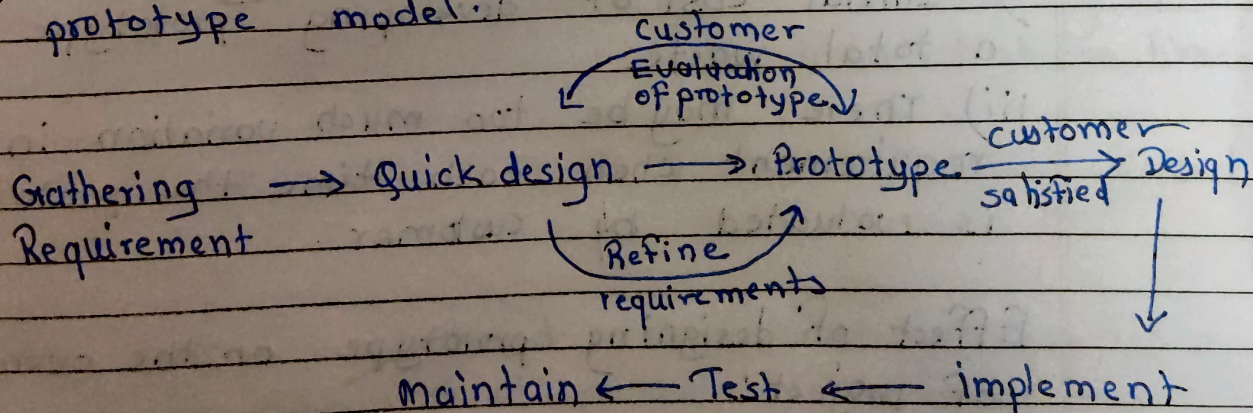 prototype model:
customer
Evaluation
of prototype
Gathering → Quick design → Prototype customer → Design
satisfied
Requirement
Refine
requirements
maintain ← Test ← implement